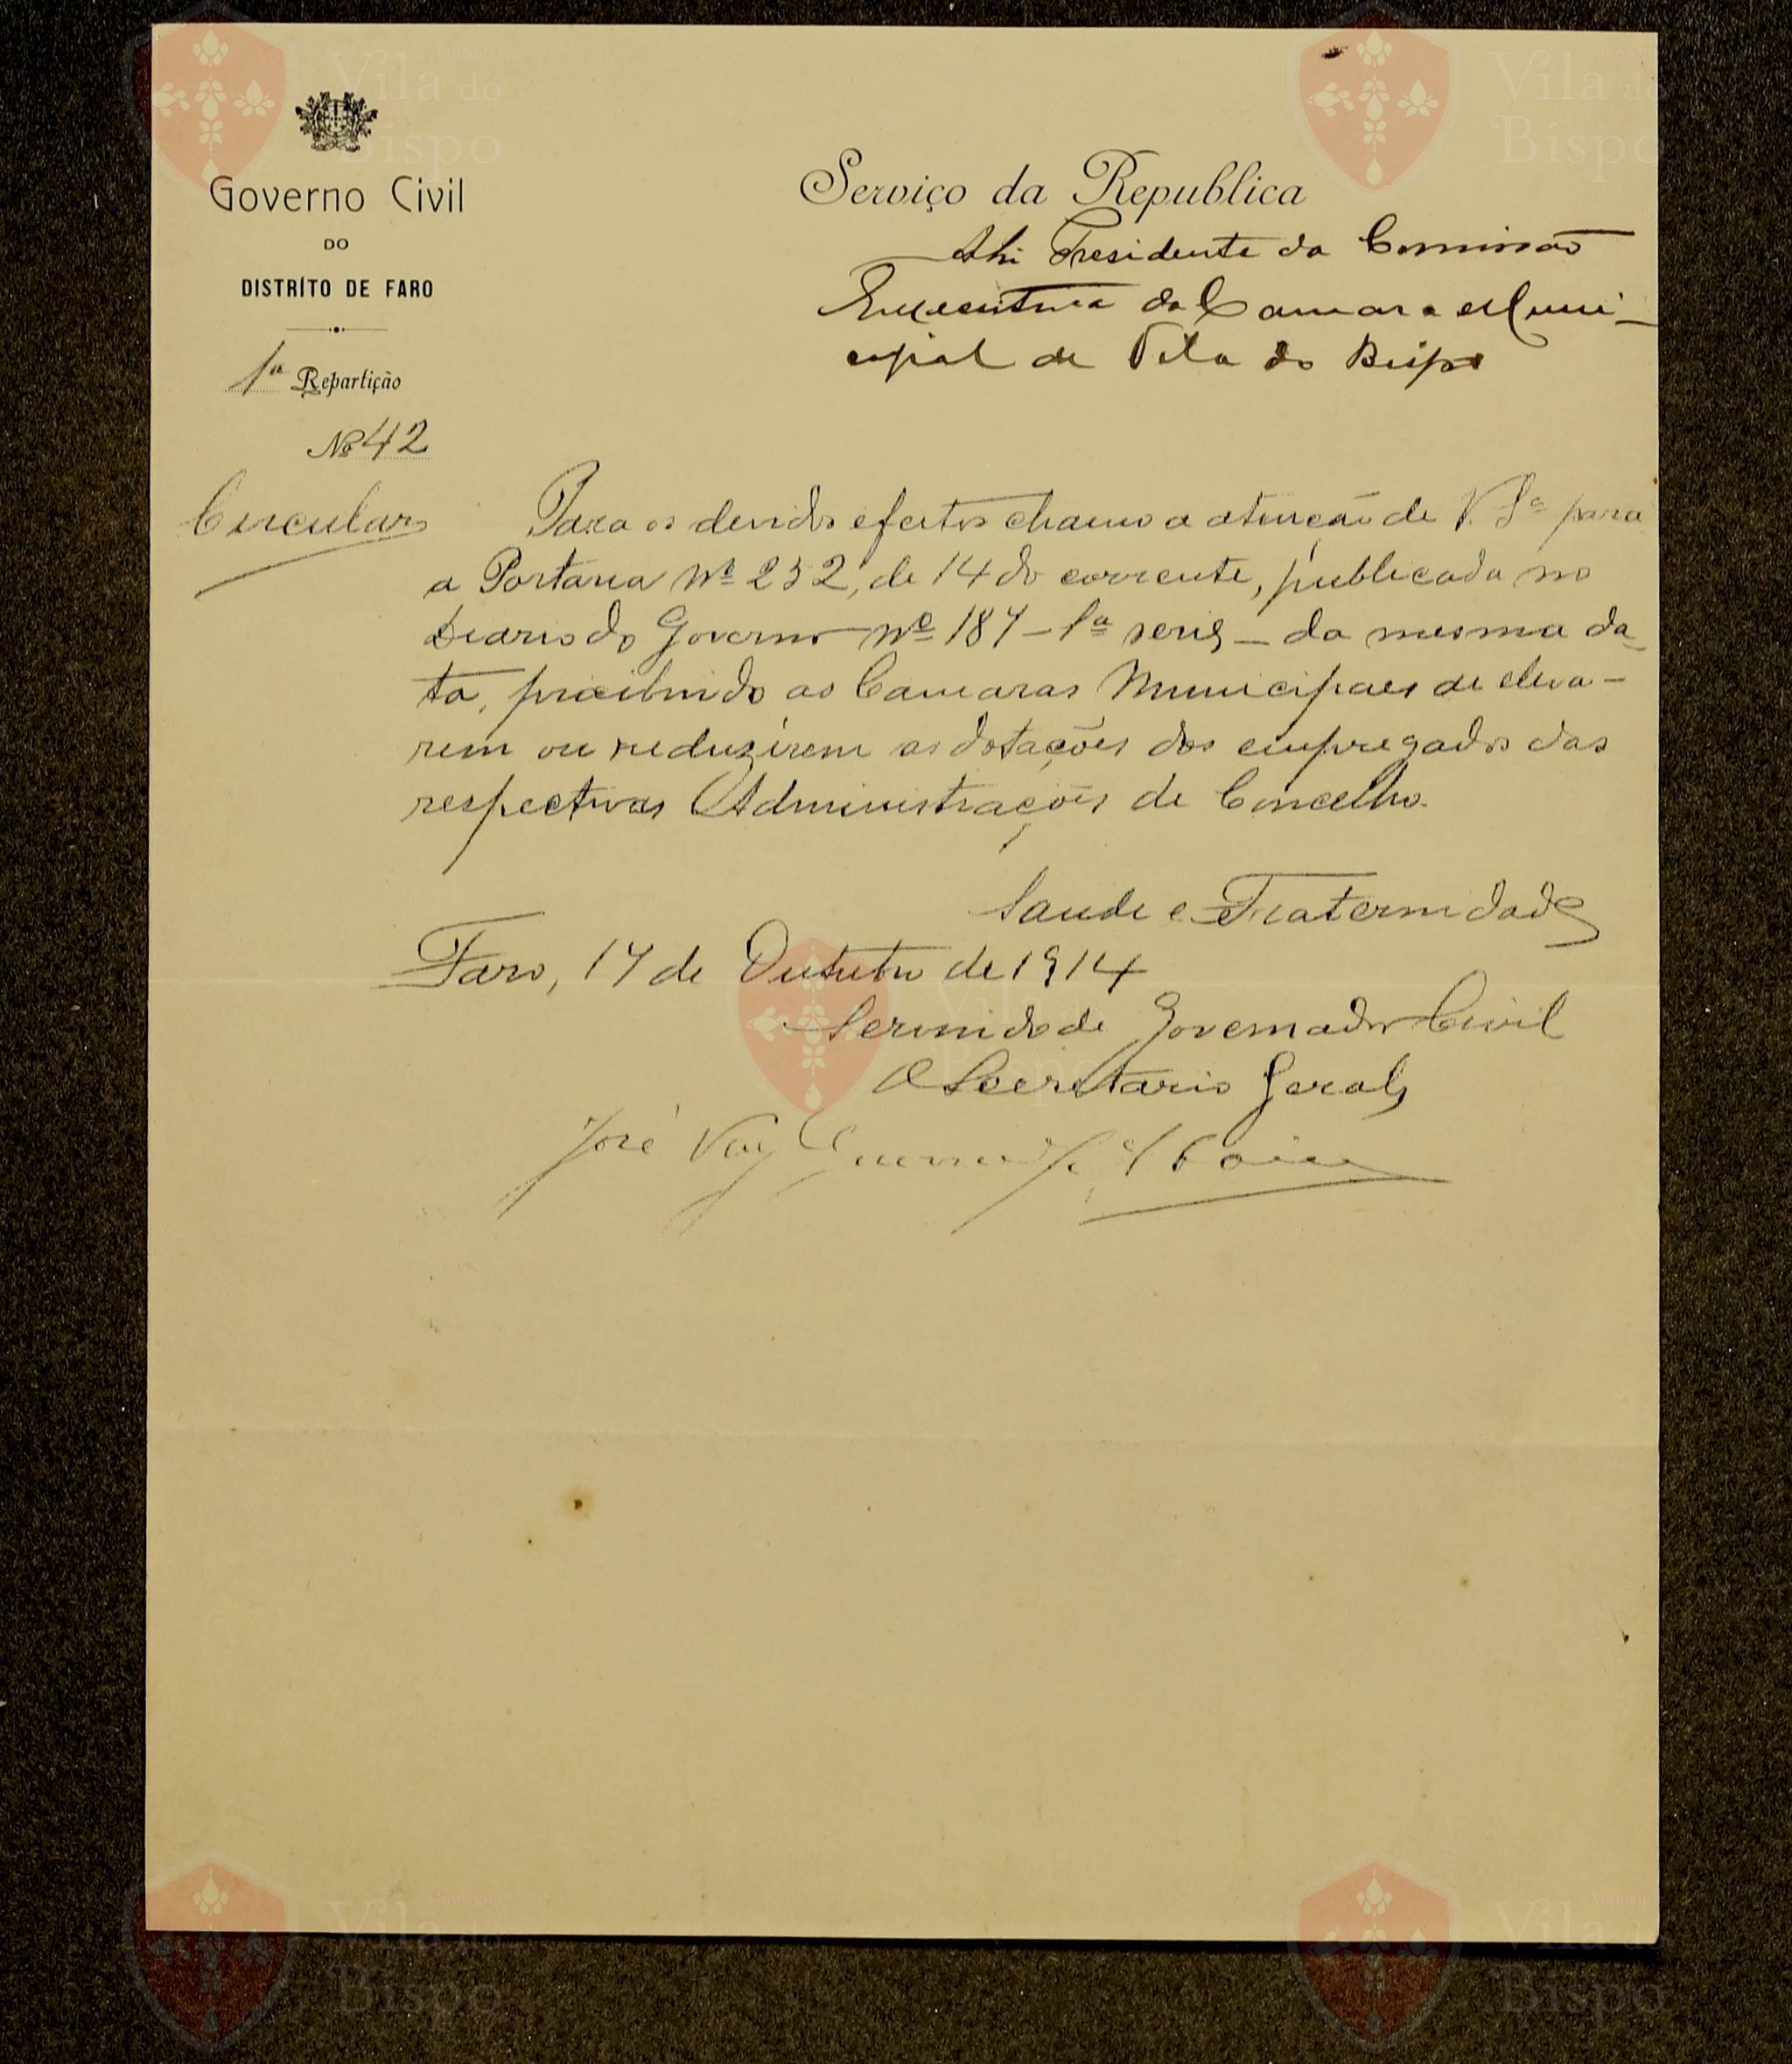 Governo Civil
DO
DISTRÍTO DE FARO
1ª Repartição
Nº 42
Circular
Serviço da Republica
Presidente da Comissão
Executiva da Camara Muni-
cipal de Vila do Bispo
Para os devidos efeitos chamo a atenção de V. Sª para
a Portaria Nº 232, de 14 do corrente, publicada no
Diario do Governo Nº 187 – 1ª serie – da mesma da-
ta, proibindo as Camaras Municipaes de eleva-
rem ou reduzirem as dotações dos empregados das
respectivas Administrações de Concelho.
Saude e Fraternidade
Faro, 17 de Outubro de 1914
Servindo de Governador Civil
O Secretario Geral,
José Vaz Guerreiro
Vila do
Bispo
Vila do
Bispo
Vila do
Bispo
Vila do
Bispo
Vila do
Bispo